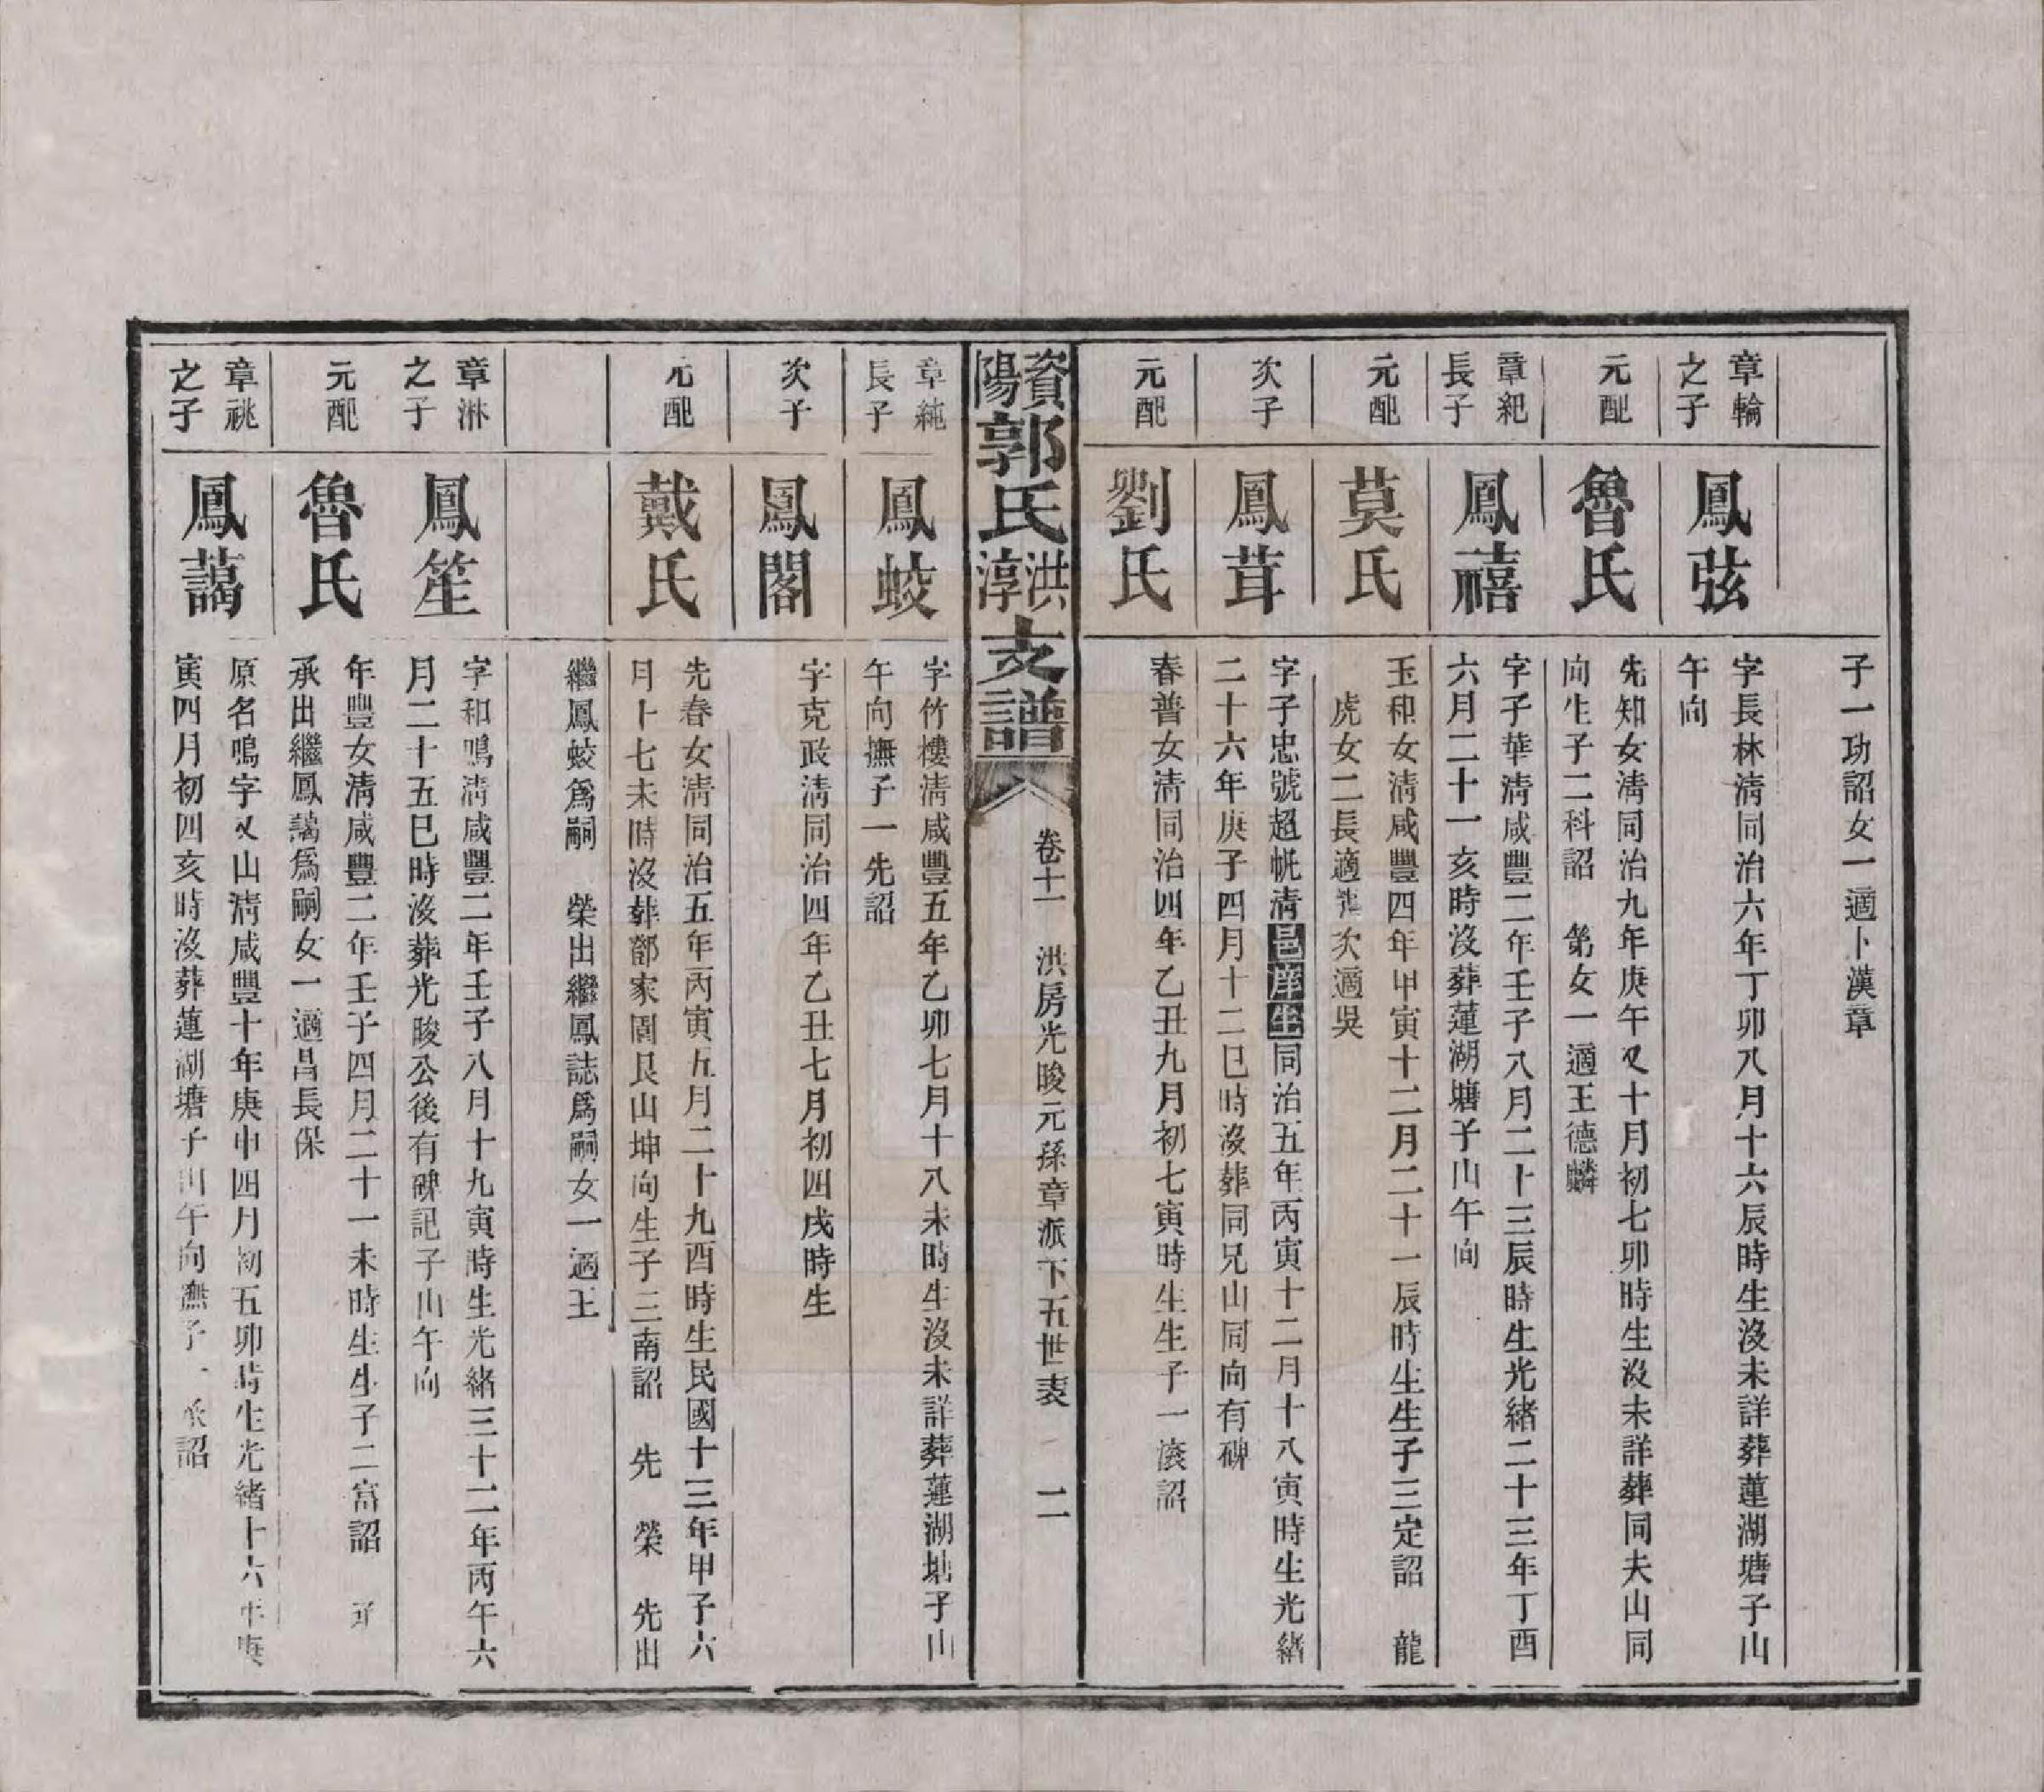 子一功詔女一適卜漢章
章輪
之子
鳳弦
字長林清同治六年丁卯八月十六辰時生沒未詳葬蓮湖塘子山
午向
元配
魯氏
先知女清同治九年庚午又十月初七卯時生沒未詳葬同夫山同
向生子二科詔　第女一適王德麟
章紀
長子
鳳禧
字子華清咸豐二年壬子八月二十三辰時生光緒二十三年丁酉
六月二十一亥時沒葬蓮湖塘子山午向
元配
莫氏
玉和女清咸豐四年甲寅十二月二十一辰時生生子三定詔　龍
虎女二長適龔次適吳
次子
鳳茸
字子忠號超帆清邑庠生同治五年丙寅十二月十八寅時生光緒
二十六年庚子四月十二巳時沒葬同兄山同向有碑
元配
劉氏
春普女清同治四年乙丑九月初七寅時生生子一滾詔
資陽郭氏洪淳支譜
卷十一　洪房光晙元孫章派下五世表　二
章純
長子
鳳蛟
字竹樓清咸豐五年乙卯七月十八未時生沒未詳葬蓮湖塘子山
午向撫子一先詔
次子
鳳閣
字克政清同治四年乙丑七月初四戌時生
元配
戴氏
先春女清同治五年丙寅五月二十九酉時生民國十三年甲子六
月十七未時沒葬鄧家園艮山坤向生子三南詔　先　榮　先出
繼鳳蛟爲嗣　榮出繼鳳誌爲嗣女一適王
章淋
之子
鳳笙
字和鳴清咸豐二年壬子八月十九寅時生光緒三十二年丙午六
月二十五巳時沒葬光晙公後有碑記子山午向
元配
魯氏
年豐女清咸豐二年壬子四月二十一未時生生子二富詔　承
承出繼鳳藹爲嗣女一適昌長保
章祧
之子
鳳藹
原名鳴字又山清咸豐十年庚申四月初五卯時生光緒十六年庚
寅四月初四亥時沒葬蓮湖塘子山午向撫子一承詔